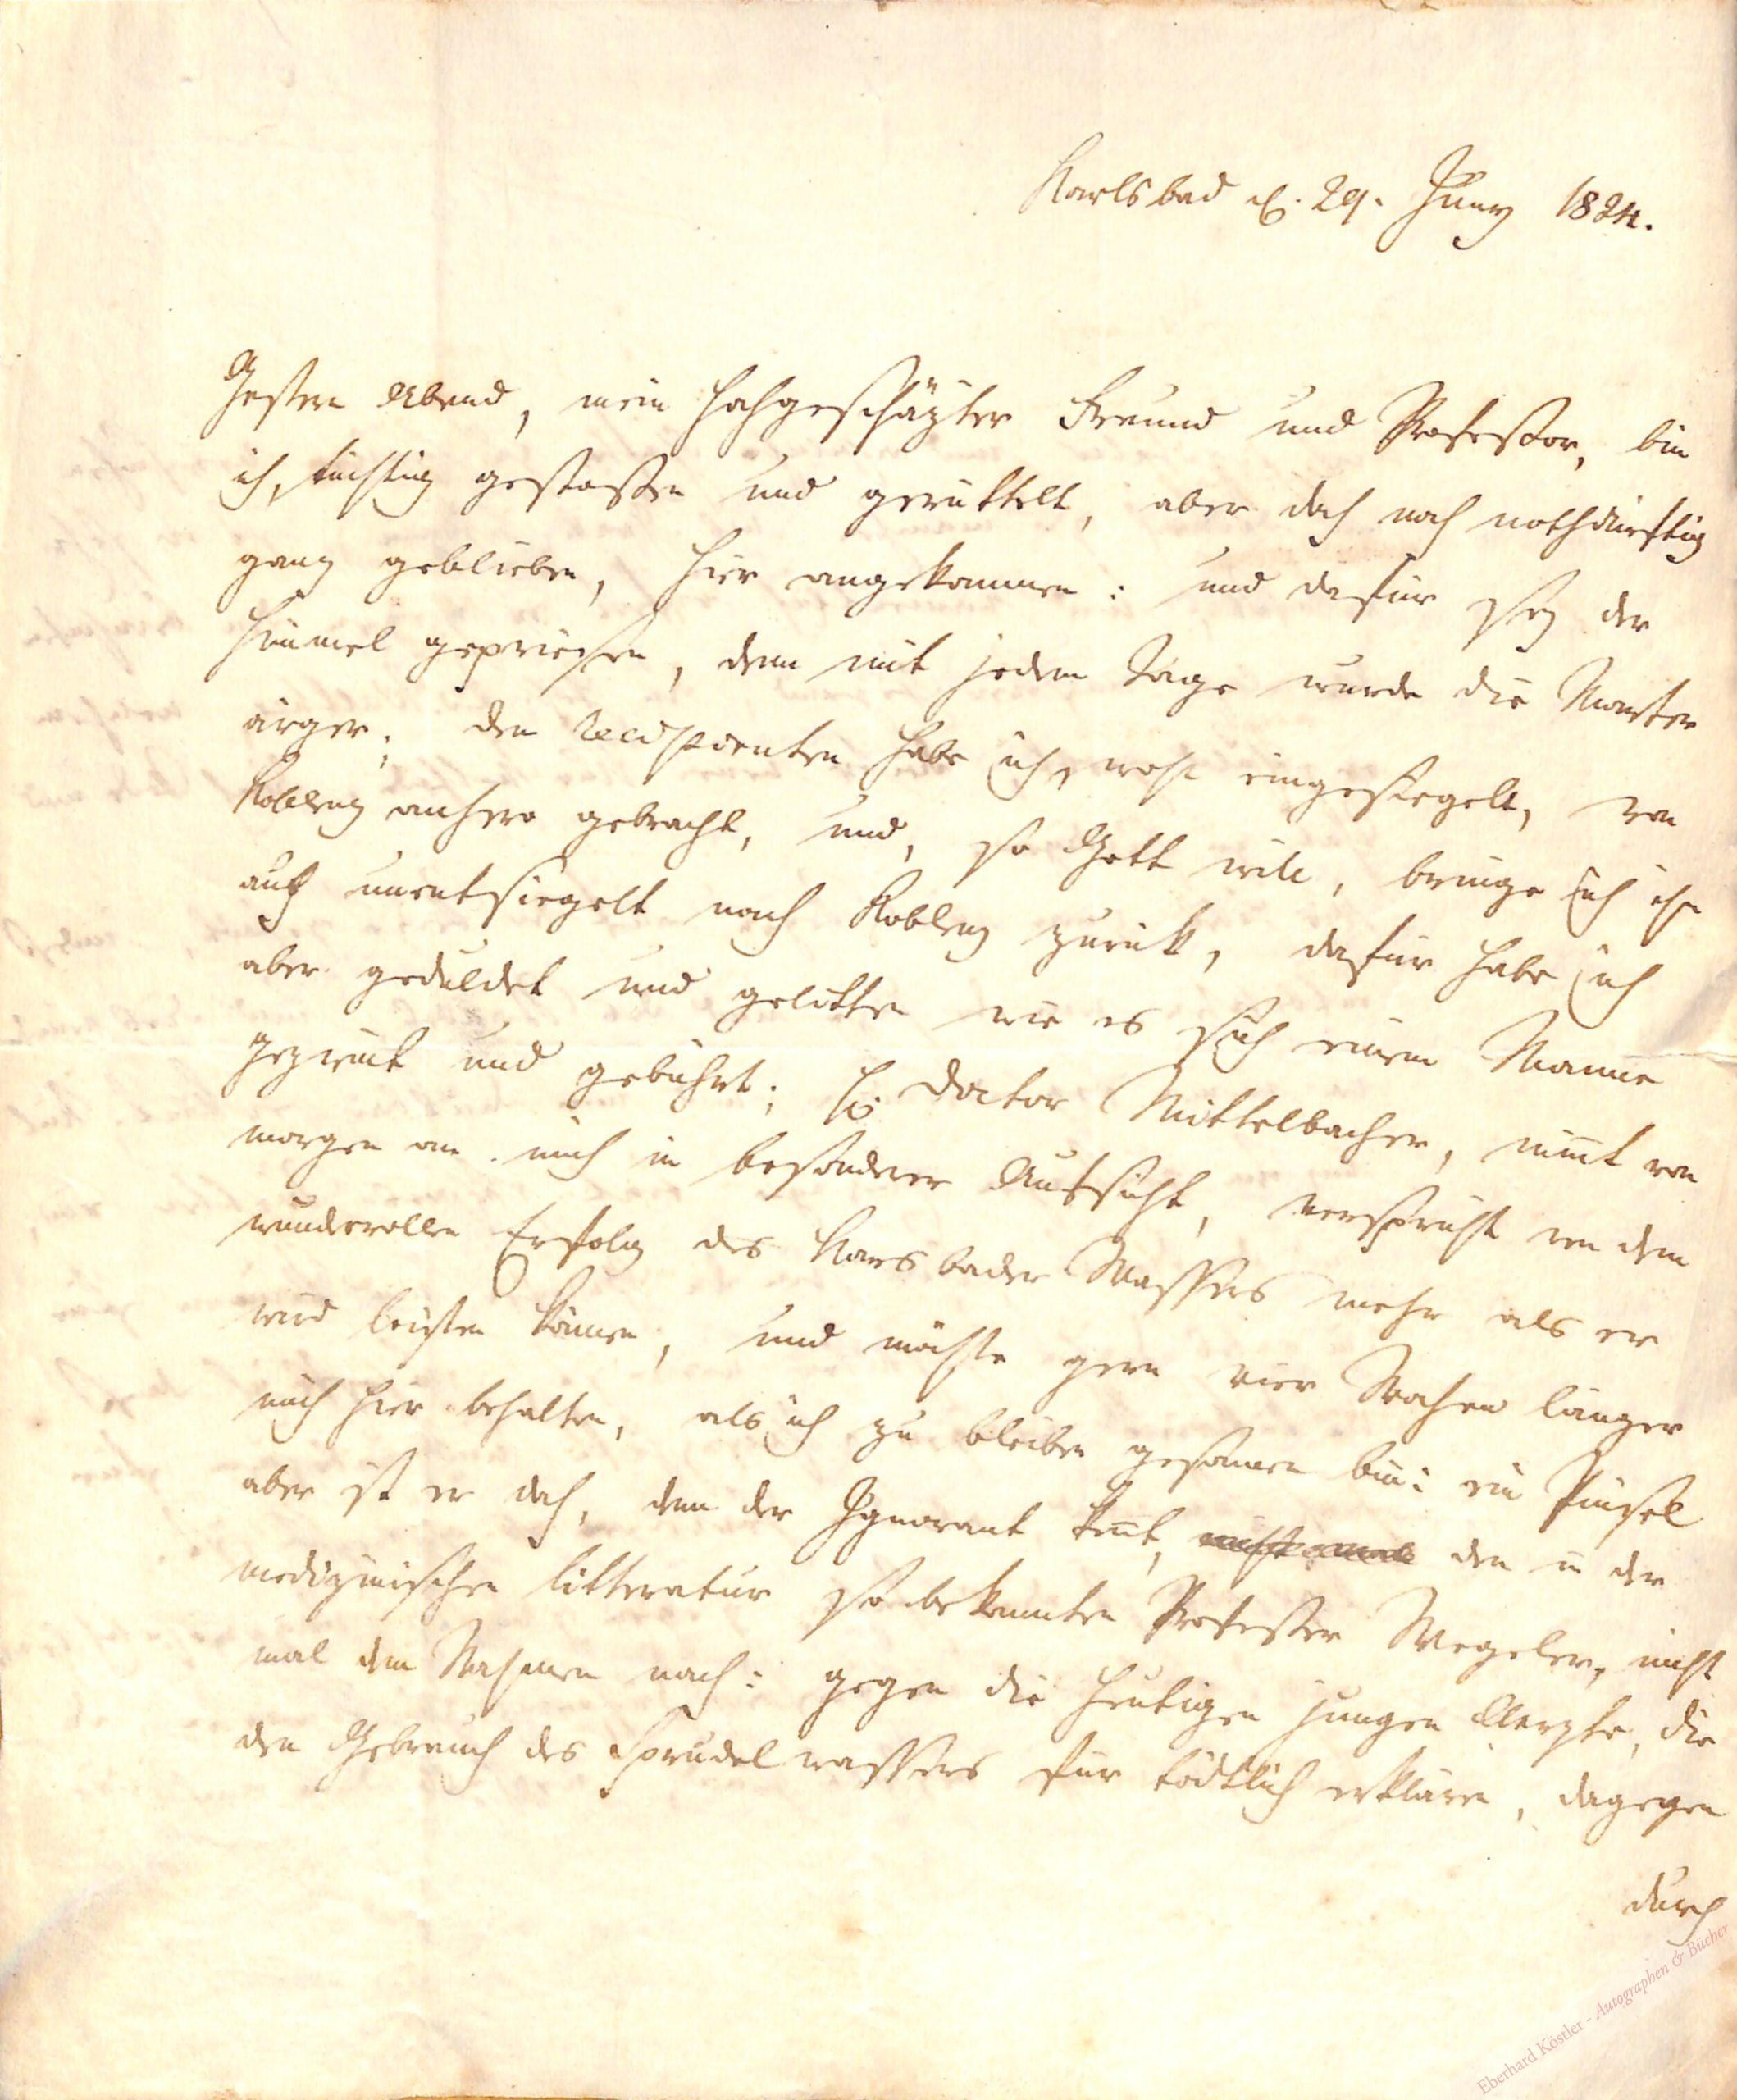 Karlsbad d. 29. Juny 1824.
Gestern Abend, mein hochgeschäzter Freund und Professor, bin
ich, tüchtig gestoßen und gerüttelt, aber doch noch nothdürftig
ganz geblieben, hier angekommen: und dafür sey der
Himmel gepriesen, denn mit jedem Tage wurde die Marter
ärger; den Recipienten habe ich, wohl eingesiegelt, von
Koblenz anhero gebracht, und, so Gott will, bringe ich ihn
auch unentsiegelt nach Koblenz zurück, dafür habe ich
aber geduldet und gelitten wie es sich einem Manne
geziemt und gebührt; H. Doctor Mittelbacher, nimt von
morgen an mich in besonderer Aufsicht, verspricht von dem
wundervollen Erfolg des Karlsbader Wassers mehr als er
wird leisten können, und möchte gern vier Wochen länger
mich hier behalten, als ich zu bleiben gesonnen bin: ein Pinsel
aber ist er doch, denn der Ignorant kent, den in der
medizinischen litteratur so bekannten Professor Wegeler, nicht
mal dem Nahmen nach: gegen die heutigen jungen Aerzte, die
den Gebrauch des Sprudelwassers für tödtlich erklären, dagegen
durch
Eberhard Köstler - Autographen & Bücher